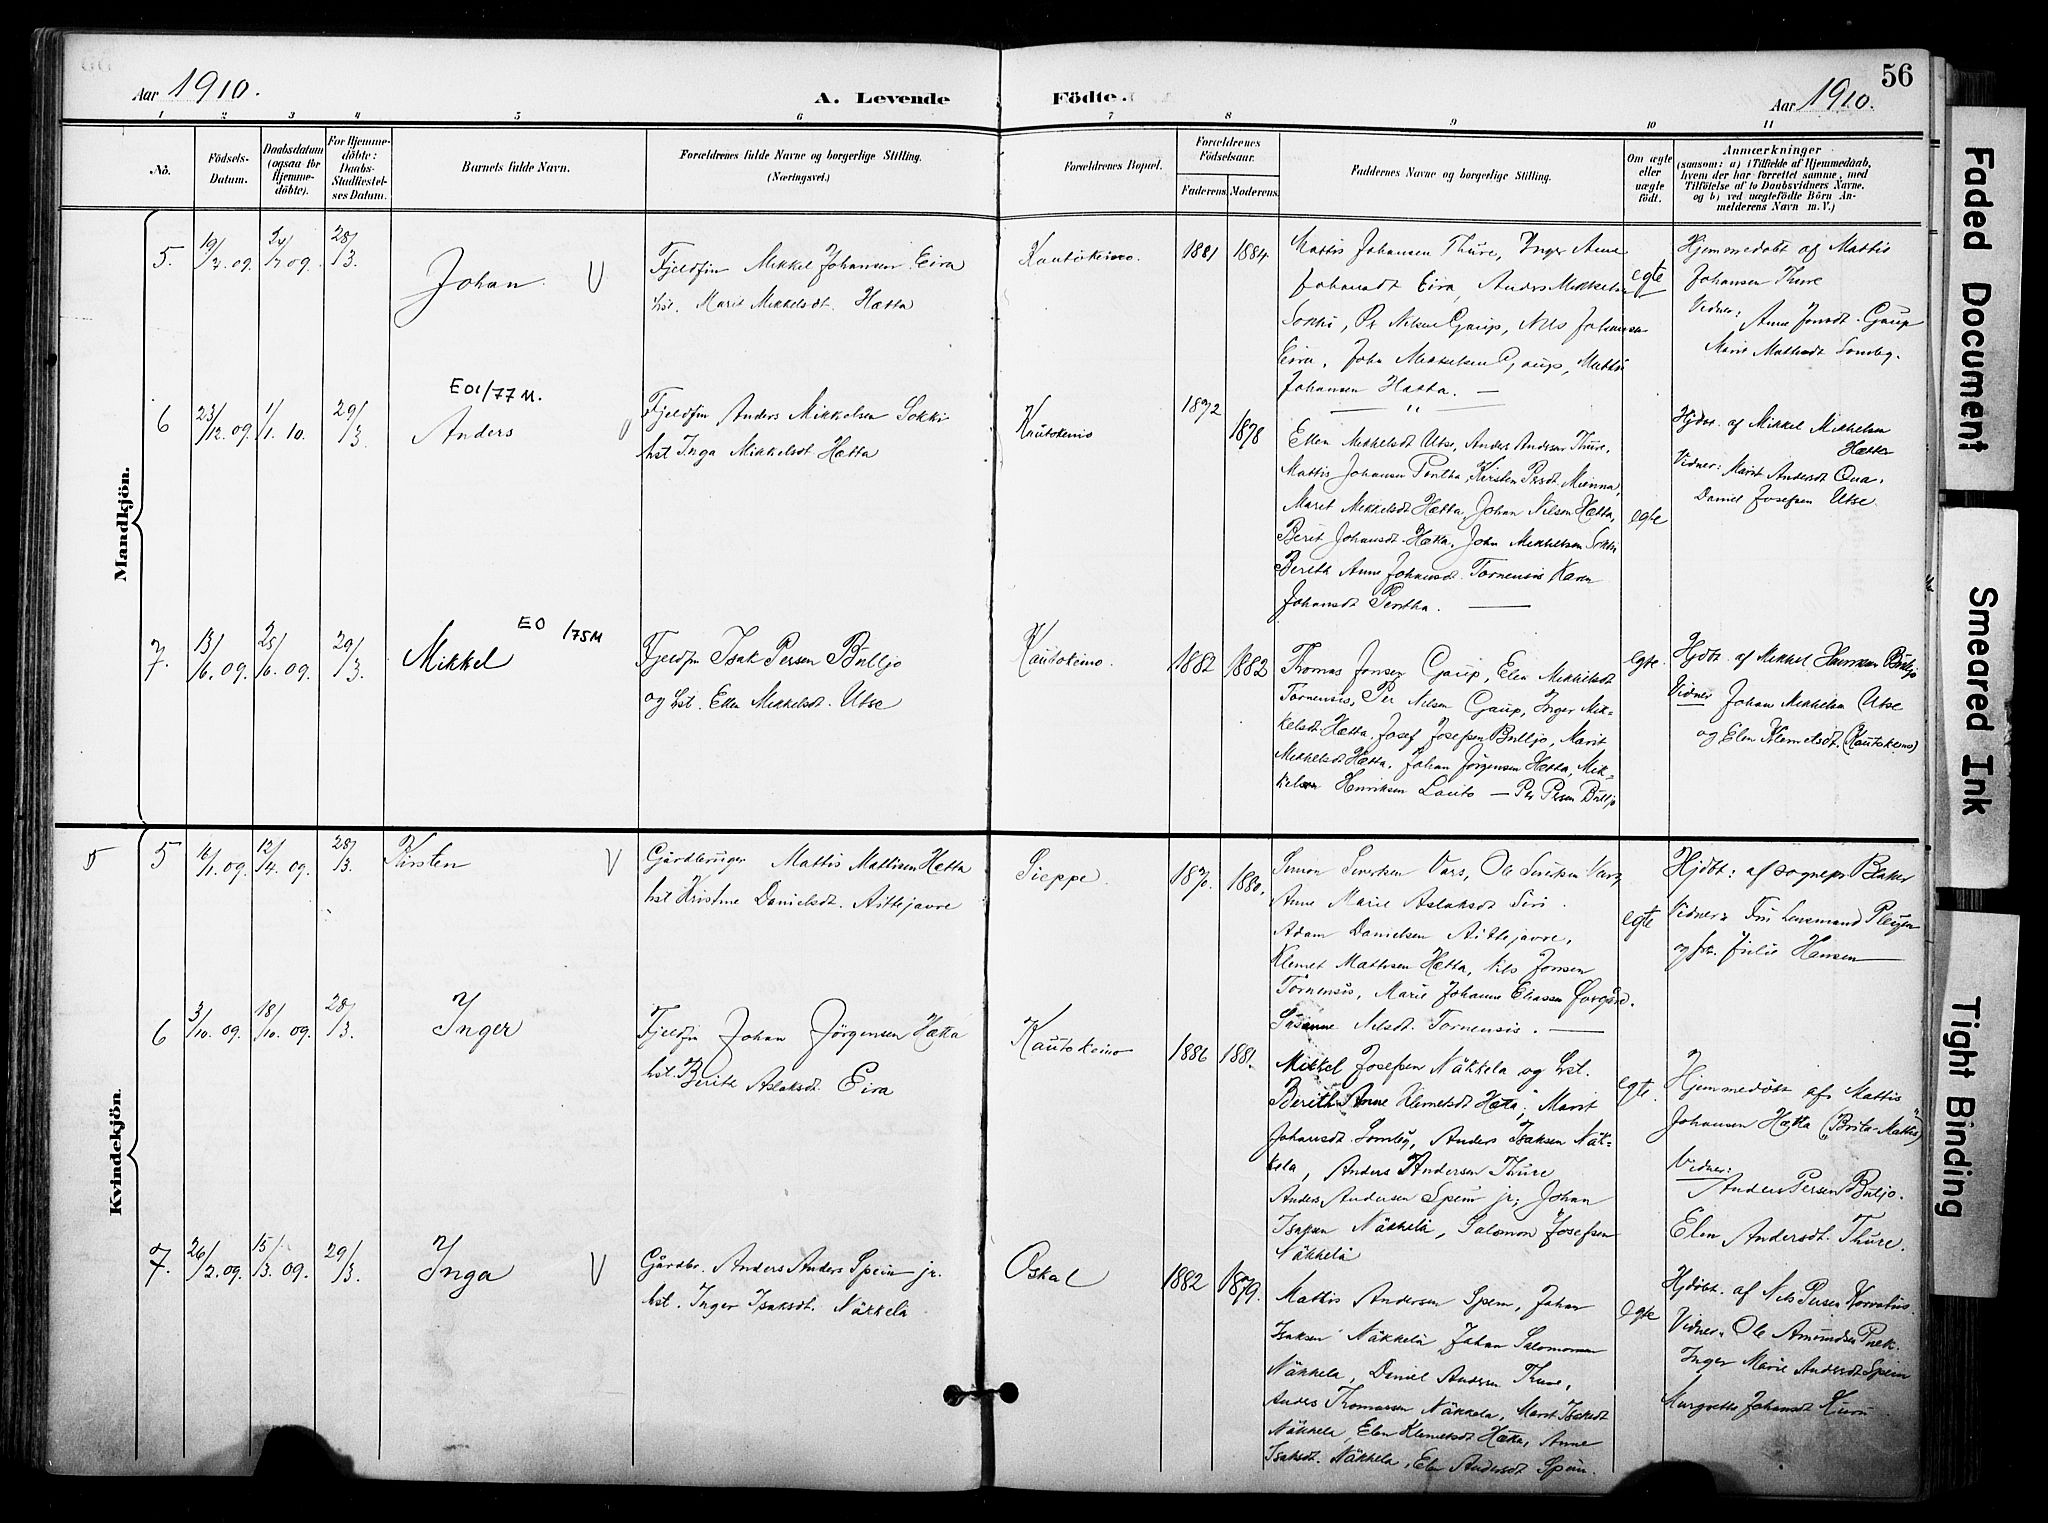 56
Aar 1910.
A. Levende Födte.
Aar 1910.
1 2 3 4 5 6 7 8 9 10 11
No.
Födsels-
Datum.
Daabsdatum
(ogsaa for
Hjemme-
döbte).
For Hjemme-
döbte:
Daabs-
Stadfæstel-
ses Datum.
Barnets fulde Navn.
Forældrenes fulde Navne og borgerlige Stilling.
(Næringsvei.)
Forældrenes Bopæl.
Forældrenes
Födselsaar.
Faderens. Moderens.
Faddernes Navne og borgerlige Stilling.
Om ægte
eller
uægte
født.
Anmærkninger
(saasom: a) i Tilfælde af Hjemmedaab,
hvem der har forrettet samme, med
Tilföielse af to Daabsvidners Navne,
og b) ved uægtefödte Börn An-
melderens Navn m. V.)
Mandkjön.
5. 19/ 09. 09. 28/3. Johan V
Fjeldfin Mikkel Johansen Eira
hst. Marit Mikkelsdt. Hætta
Kautokeino. 1881 1884.
Mattis Johansen Thure, Inger Anne
Johansdt Eira, Anders Mikkelsen
Sokki, Per Nilsen Gaup, Nils Johansen
Eira, John Mikkelsen Gaup, Mattis
Johansen Hætta. —
egte
Hjemmedøbt af Mattis
Johansen Thure
Vidner: Anne Jonsdt. Gaup
Marit Mathisdt Somby.
E01/77 M.
6 23/12. 09. 1/1. 10. 29/3. Anders
Fjeldfin Anders Mikkelsen Sokki
hst Inga Mikkelsdt Hætta
Kautokeino 1872 1878
Ellen Mikkelsdt Utse, Anders Andersen Thure,
Mattis Johansen Pentha, Kirsten Persdt Mienna,
Marit Mikkelsdt Hætta, Johan Nilsen Hætta,
Berit Johansdt. Hætta, John Mikkelsen Sokki
Berith Anne Johansdt. Tornensis Karen
Johansdt Pentha. —
egte
Hjdbt. af Mikkel Mikkelsen
Hætta
Vidner: Marit Andersdt
Daniel Josefsen Utse
EO /75M
7. 13/6. 09. 25/6. 09. 29/3. Mikkel
Fjeldfin Isak Persen Buljo
og hst. Ellen Mikkelsdt. Utse
Kautokeino. 1882 1882
Thomas Jonsen Gaup, Elen Mikkelsdt
Tornensis, Per Nilsen Gaup, Inger Mik-
kelsdt. Hætta, Josef Josefsen Buljo, Marit
Mikkelsdt Hætta, Johan Jørgensen Hætta, Mik-
kelsen Henriksen Lauto — Per Persen Buljo
egte.
Hjdbt. af Mikkel Henriksen Buljo
Vidner Johan Mikkelsen Utse
og Elen Klemetsdt. (Kautokeino)
Kvindekjön.
5 5 6/1. 09. 12/4. 09. 28/3. Kirsten V
Gårdbruger Mattis Mattisen Hætta
hst Kristine Danielsdt. Aittejavre
Sieppe. 1870. 1880.
Simon Siversen Vars, Ole
Anne Marie Aslaksdt Siri.
Adam Danielsen Aittejavre,
Klemet Mattisen Hætta, Nils Jonsen
Tornensis, Marie Johanne Eliassen
Susanne Nilsdt. Tornensis. —
egte
Hjdbt: af sognepr Balke
Vidner: Fru Lensmand
og frk. Julie Hansen
6 3/10. 09. 18/10. 09. 28/3. Inger
Fjeldfin Johan Jörgensen Hætta
hst. Berith Aslaksdt. Eira
Kautokeino 1886 1881.
Mikkel Josefsen Näkkela og hst.
Berith Anne Klemetsdt Hætta, Marit
Johansdt. Somby, Anders Isaksen Näk-
kela, Anders Andersen Thure
Anders Andersen Spein jr; Johan
Isaksen Näkkelä, Salomon Josefsen
Näkkelä
egte.
Hjemmedöbt af Mattis
Johansen Hætta („Brita-Mattis")
Vidner:
Anders Persen Buljo.
Elen Andersdt. Thure.
7. 26/2. 09. 15/3. 09. 29/3. Inga V
Gårdbr. Anders Anders Spein jr.
hst. Inger Isaksdt. Näkkelä
Oskal 1882 1879.
Mattis Andersen Spein, Johan
Isaksen Näkkelä, Johan Salomonsen
Näkkela, Daniel Andersen Thure,
Anders Thomassen Näkkela, Marit Isaksdt
Näkkela, Elen Klemetsdt Hætta, Anne
Isaksdt. Näkkela, Elen Andersdt Spein.
egte
Hjdöbt. af Nils Persen
Vidner. Ole Amundsen
Inger Marie Andersdt Spein
Margrethe Johansdt
Faded Document
Smeared Ink
Tight Binding